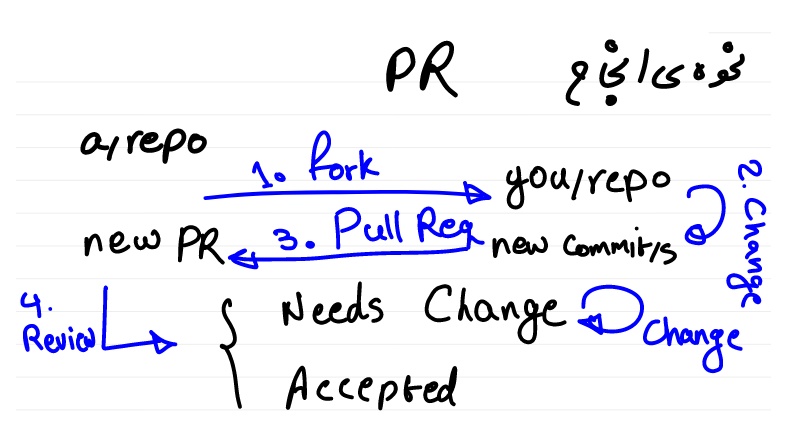 نحوه ی انجام PR
a/repo
1. fork
you/repo
2. Change
new PR
3. Pull Req
new commit/s
4. Review
Needs Change
Change
Accepted